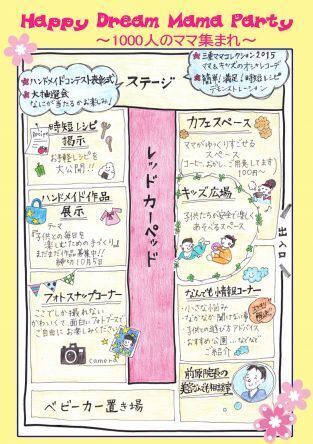 Happy Dream Mama Party
～1000人のママ集まれ～
★ハンドメイドコンテスト表彰式
★大抽選会
なにが当たるかお楽しみ♪
ステージ
★三重ママコレクション2015
ママ&キッズのオシャレコーデ
★簡単!満足!時短レシピ
デモンストレーション
レッドカーペッド
時短レシピ
掲示
お手軽レシピを
大公開!!
recipe
ハンドメイド作品
展示
テーマ
『子供との毎日を
楽しむための手づくり』
まだまだ作品募集中!!
締切10月5日
フォトスナップコーナー
ここでしか撮れない
かわいくて、面白いフォトブースで
ご自由にお楽しみください
camera
ベビーカー置き場
カフェスペース
ママがゆっくりすごせる
スペース
コーヒー、おかし、ご用意してます
100円～
キッズ広場
子供たちが安全で楽しく
あそべるスペース
出入口
なんでも情報コーナー
・小さな悩み
・なかなか聞けない事
・子供との遊び方アドバイス
・おすすめ公園…などなど
ご紹介
前原院長の
美容なんでも相談室